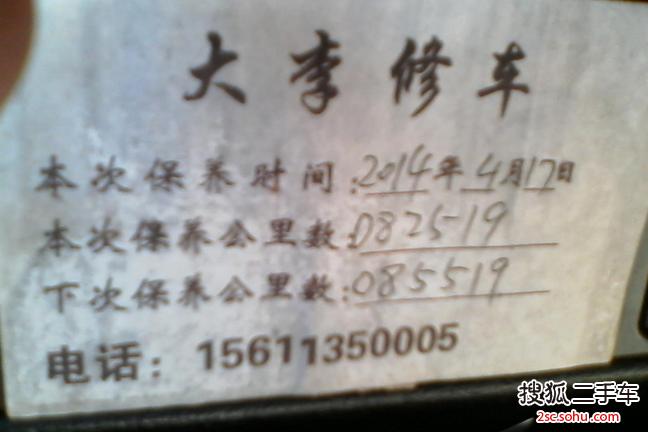 大李修车
本次保养时间:2014年4月17日
本次保养公里数:082519
下次保养公里数:085519
电话：15611350005
搜狐二手车
2sc.sohu.com